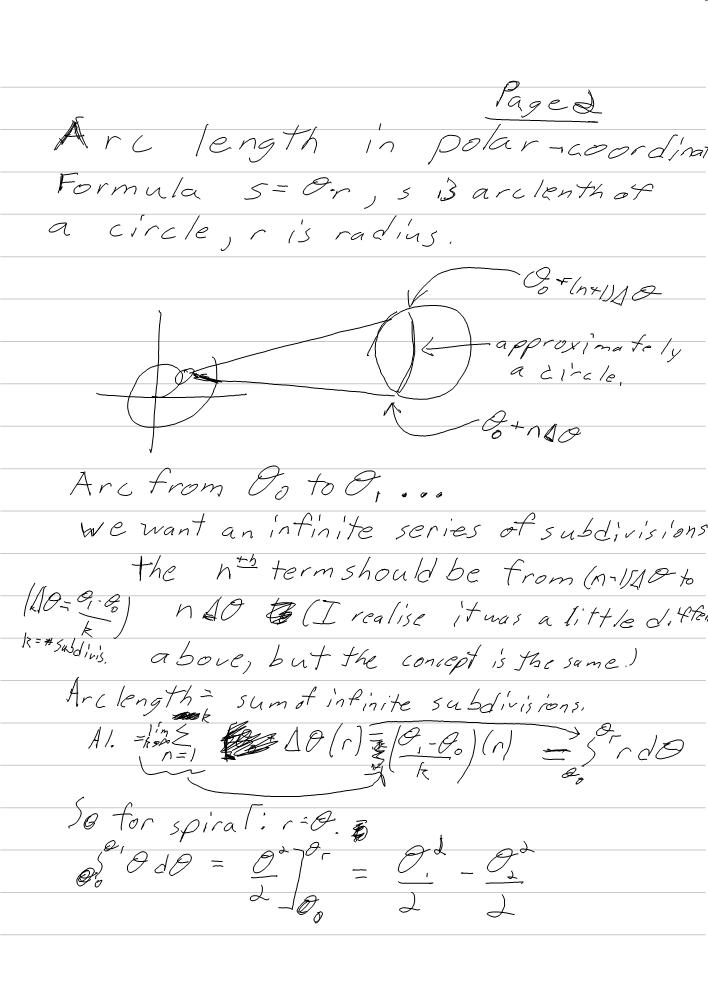 Page 2
Arc length in polar-coordinat
Formula s = θ·r, s is arc lenth of
a circle, r is radius.
θ₀+(n+1)Δθ
approximately
a circle.
θ₀+nΔθ
Arc from θ₀ to θ₁ ....
we want an infinite series of subdivisions
the nᵗʰ term should be from (n-1)Δθ to
(Δθ = (θ₁-θ₀)/k) nΔθ (I realise it was a little differ
k = # subdivis. above, but the concept is the same.)
Arc length = sum of infinite subdivisions.
Al. = lim k→∞ Σ n=1 k Δθ(r) = ((θ₁-θ₀)/k)(r) = ∫θ₀ θ₁ r dθ
So for spiral: r=θ.
∫θ₀ θ₁ θ dθ = θ²/2 ]θ₀ θ₁ = θ₁²/2 - θ₂²/2